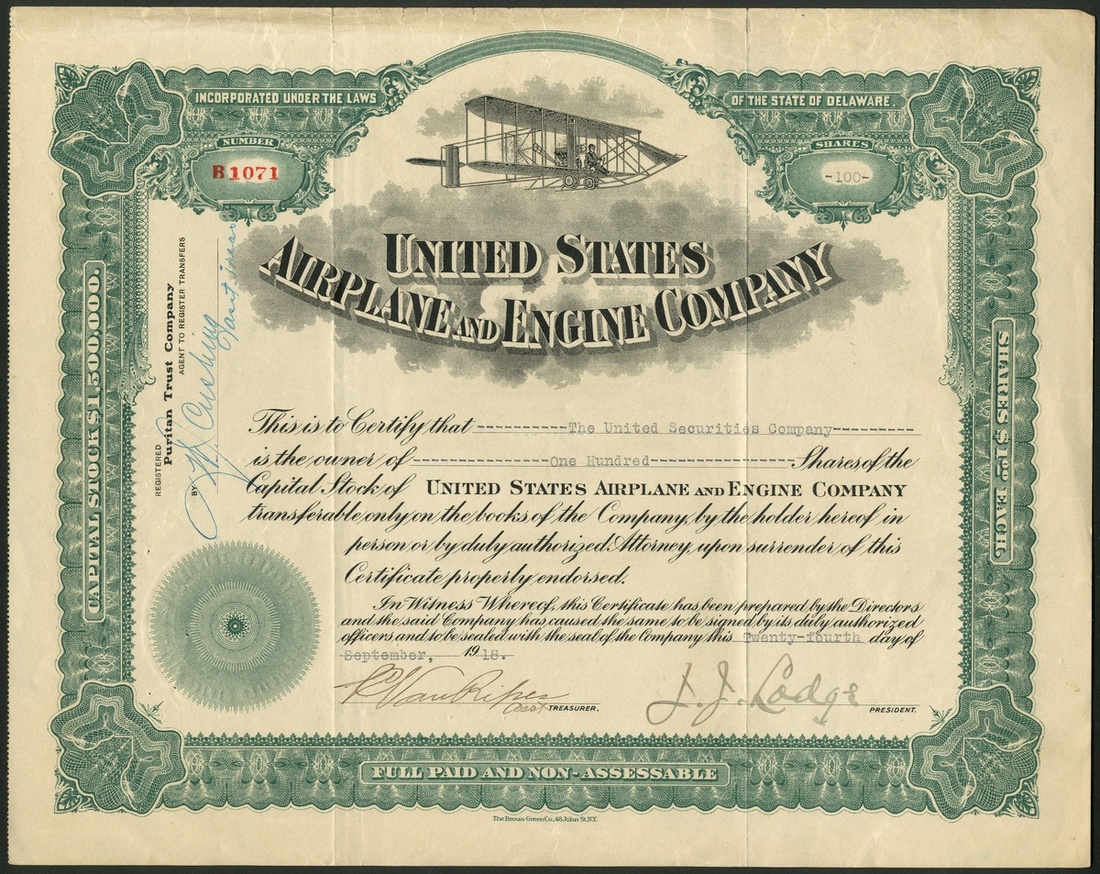 INCORPORATED UNDER THE LAWS OF THE STATE OF DELAWARE.
NUMBER
B1071
SHARES
-100-
UNITED STATES
AIRPLANE AND ENGINE COMPANY
CAPITAL STOCK $1,500,000.
SHARES $1.00 EACH.
REGISTERED
Puritan Trust Company
AGENT TO REGISTER TRANSFERS
BY
This is to Certify that ----------The United Securities Company----------
is the owner of ---------------One Hundred---------------- Shares of the
Capital Stock of UNITED STATES AIRPLANE AND ENGINE COMPANY
transferable only on the books of the Company, by the holder hereof in
person or by duly authorized Attorney, upon surrender of this
Certificate properly endorsed.
In Witness Whereof, this Certificate has been prepared by the Directors
and the said Company has caused the same to be signed by its duly authorized
officers and to be sealed with the seal of the Company this Twenty-fourth day of
September, 1918.
Asst TREASURER.
J. J. Lodge PRESIDENT.
FULL PAID AND NON-ASSESSABLE
The Broun Green Co., 48 John St. N.Y.